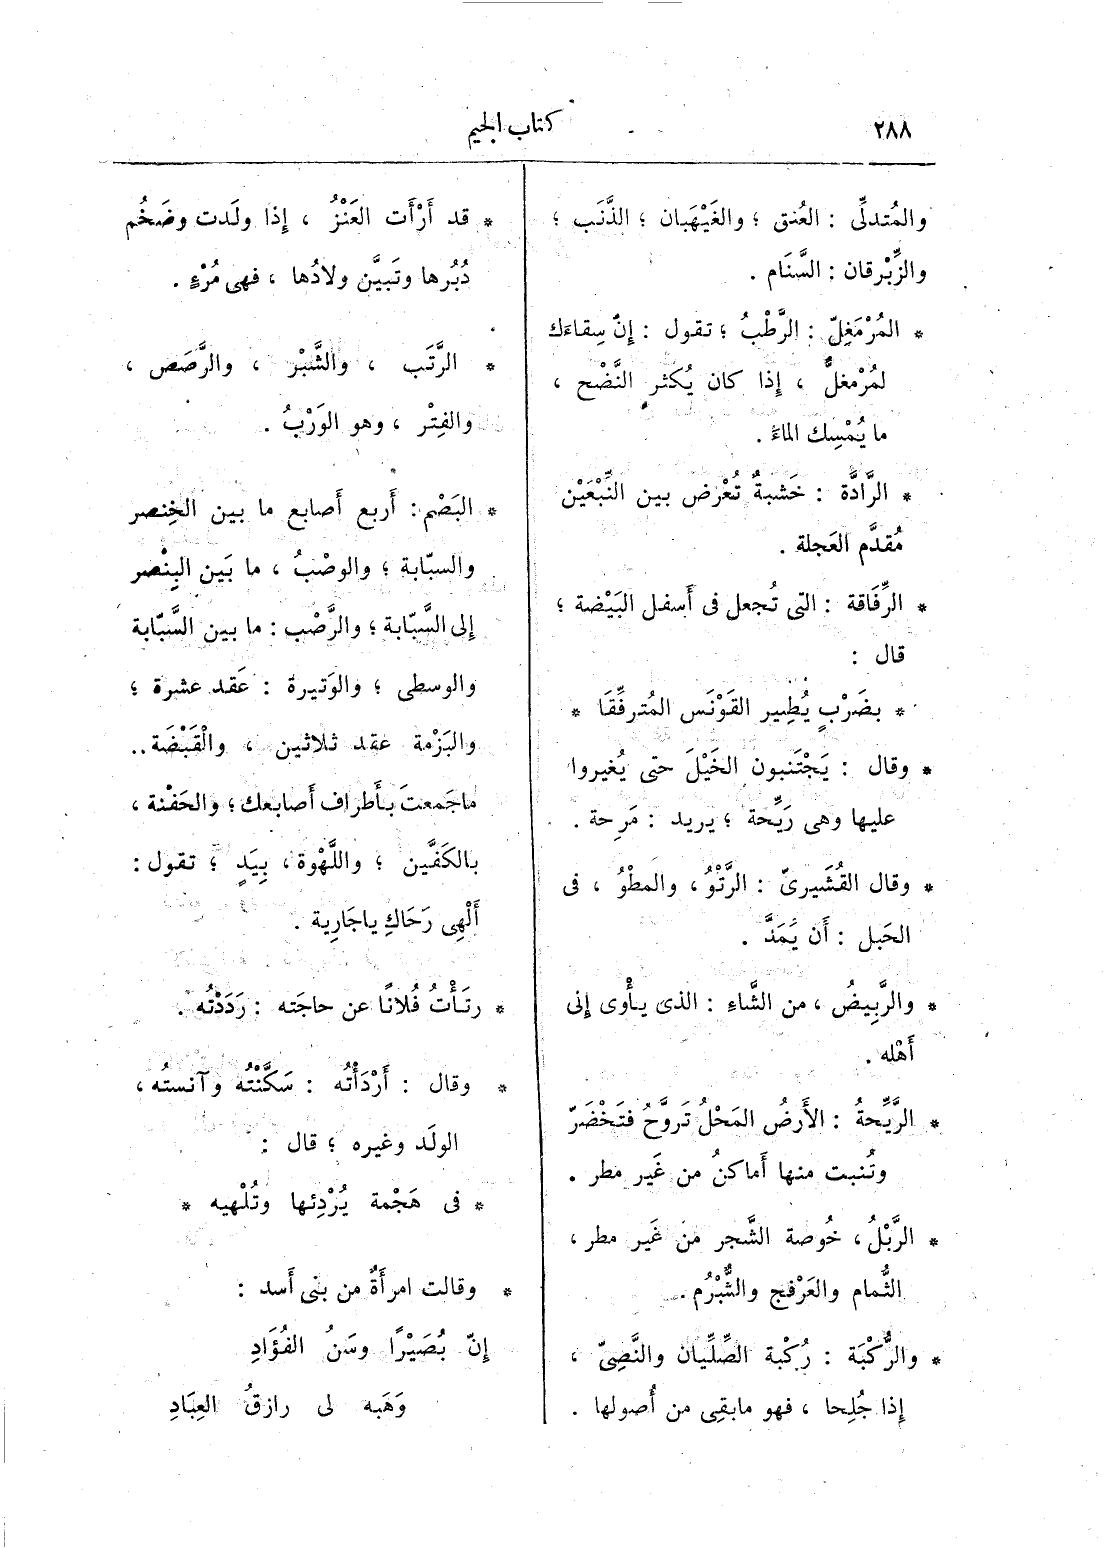 ٢٨٨
كتاب الجيم
والمُتدلِّى : العُنق ؛ والغَيْهَبان ؛ الذَّنَب ؛
والزِّبْرقان : السَّنَام .
* المُرْمَغِلّ : الرَّطْبُ ؛ تقول : إنّ سِقاءَك
لمُرْمغلٌّ ، إذا كان يُكثر النَّضْح ،
ما يُمْسِك الماءَ .
* الرَّادَّة : خَشبةٌ تُعْرض بين النِّبْعَيْن
مُقدَّم العَجلة .
* الرِّفَاقة : التى تُجعل فى أَسفل البَيْضة ؛
قال :
* بضَرْبٍ يُطِير القَوْنَس المُترفِّقَا *
* وقال : يَجْتَنبون الخَيْلَ حتى يُغيروا
عليها وهى رَيِّحة ؛ يريد : مَرِحة .
* وقال القُشَيرىّ : الرَّتْوُ ، والمطْوُ ، فى
الحَبل : أَن يَمَدَّ .
* والرَّبِيضُ ، من الشَّاءِ : الذى يأْوى إلى
أَهْله .
* الرَّيِّحةُ : الأَرضُ المَحْلُ تَروَّحُ فتَخْضَرّ
وتُنبت منها أَماكنُ من غَير مطر .
* الرَّبْلُ ، خُوصة الشَّجر من غَير مطر ،
الثُّمام والعَرْفج والشُّبْرُم .
* والرُّكْبَة : رُكْبة الصِّلِّيان والنَّصِىّ ،
إذا جُلِحا ، فهو مابقِى من أُصولها .
* قد أَرْأَت العَنْزُ ، إذا ولَدت وضَخُم
دُبُرها وتَبيَّن ولادُها ، فهى مُرْءٍ .
* الرَّتَب ، والشَّبْر ، والرَّصَص ،
والفِتْر ، وهو الوَرْبُ .
* البَصْم : أَربع أَصابع ما بين الخِنصر
والسبّابة ؛ والوضْبُ ، ما بَين البِنْصر
إلى السَّبّابة ؛ والرَّصْب : ما بين السَّبّابة
والوسطى ؛ والوَتيرة : عَقد عشرة ؛
والبَزْمة عقد ثلاثين ، والْقَبْضَة ..
ماجَمعتَ بأَطراف أَصابعك ؛ والحَفْنة ،
بالكَفَّين ؛ واللَّهْوة ، بِيَدٍ ؛ تقول :
أَلْهِى رَحَاكِ ياجَارِية .
* رتَأْتُ فُلانًا عن حاجَته : رَدَدْتُه .
* وقال : أَرْدَأْتُه : سَكَّنْتُه وآنستُه ،
الولَد وغيره ؛ قال :
* فى هَجْمة يُرْدِئها وتُلْهيه *
* وقالت امرأَةٌ من بنى أَسد :
إنّ بُصَيْرًا وسَنُ الفُؤَادِ
وَهَبه لى رازقُ العِبَادِ